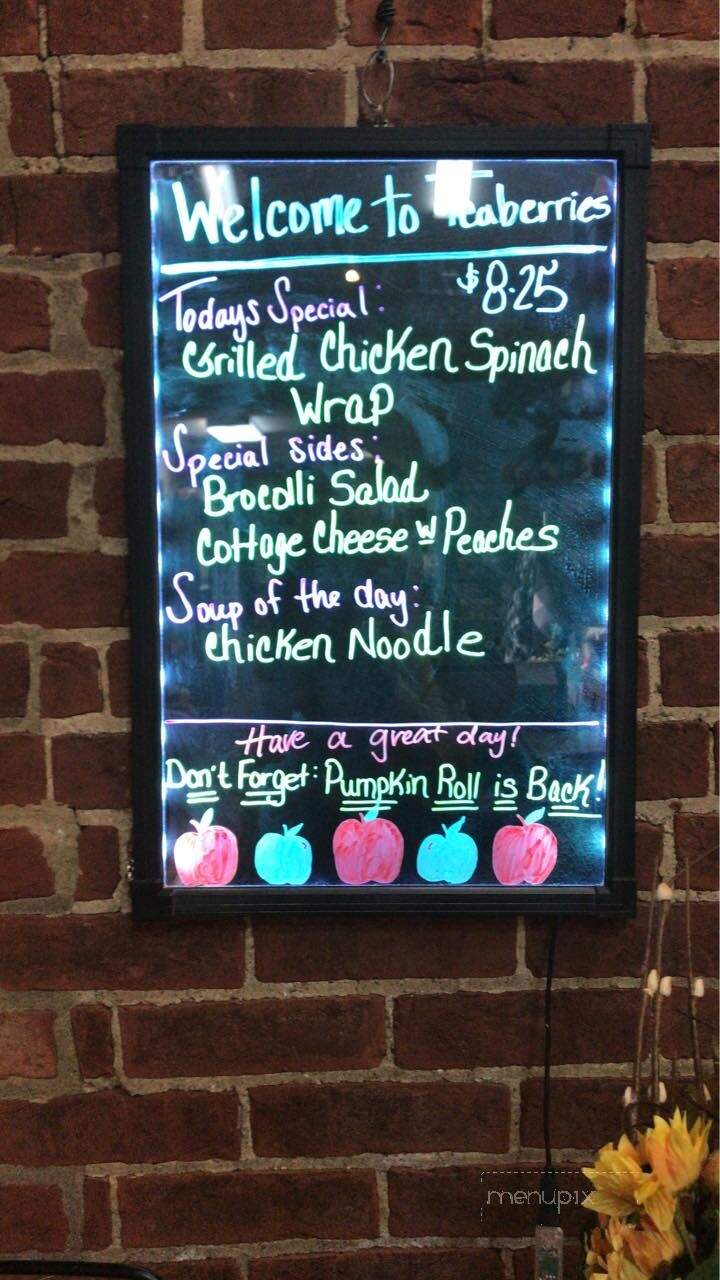 Welcome to Teaberries
Todays Special: $8.25
Grilled Chicken Spinach
Wrap
Special Sides:
Brocolli Salad
Cottage Cheese w Peaches
Soup of the day:
Chicken Noodle
Have a great day!
Don't Forget: Pumpkin Roll is Back!
menupix